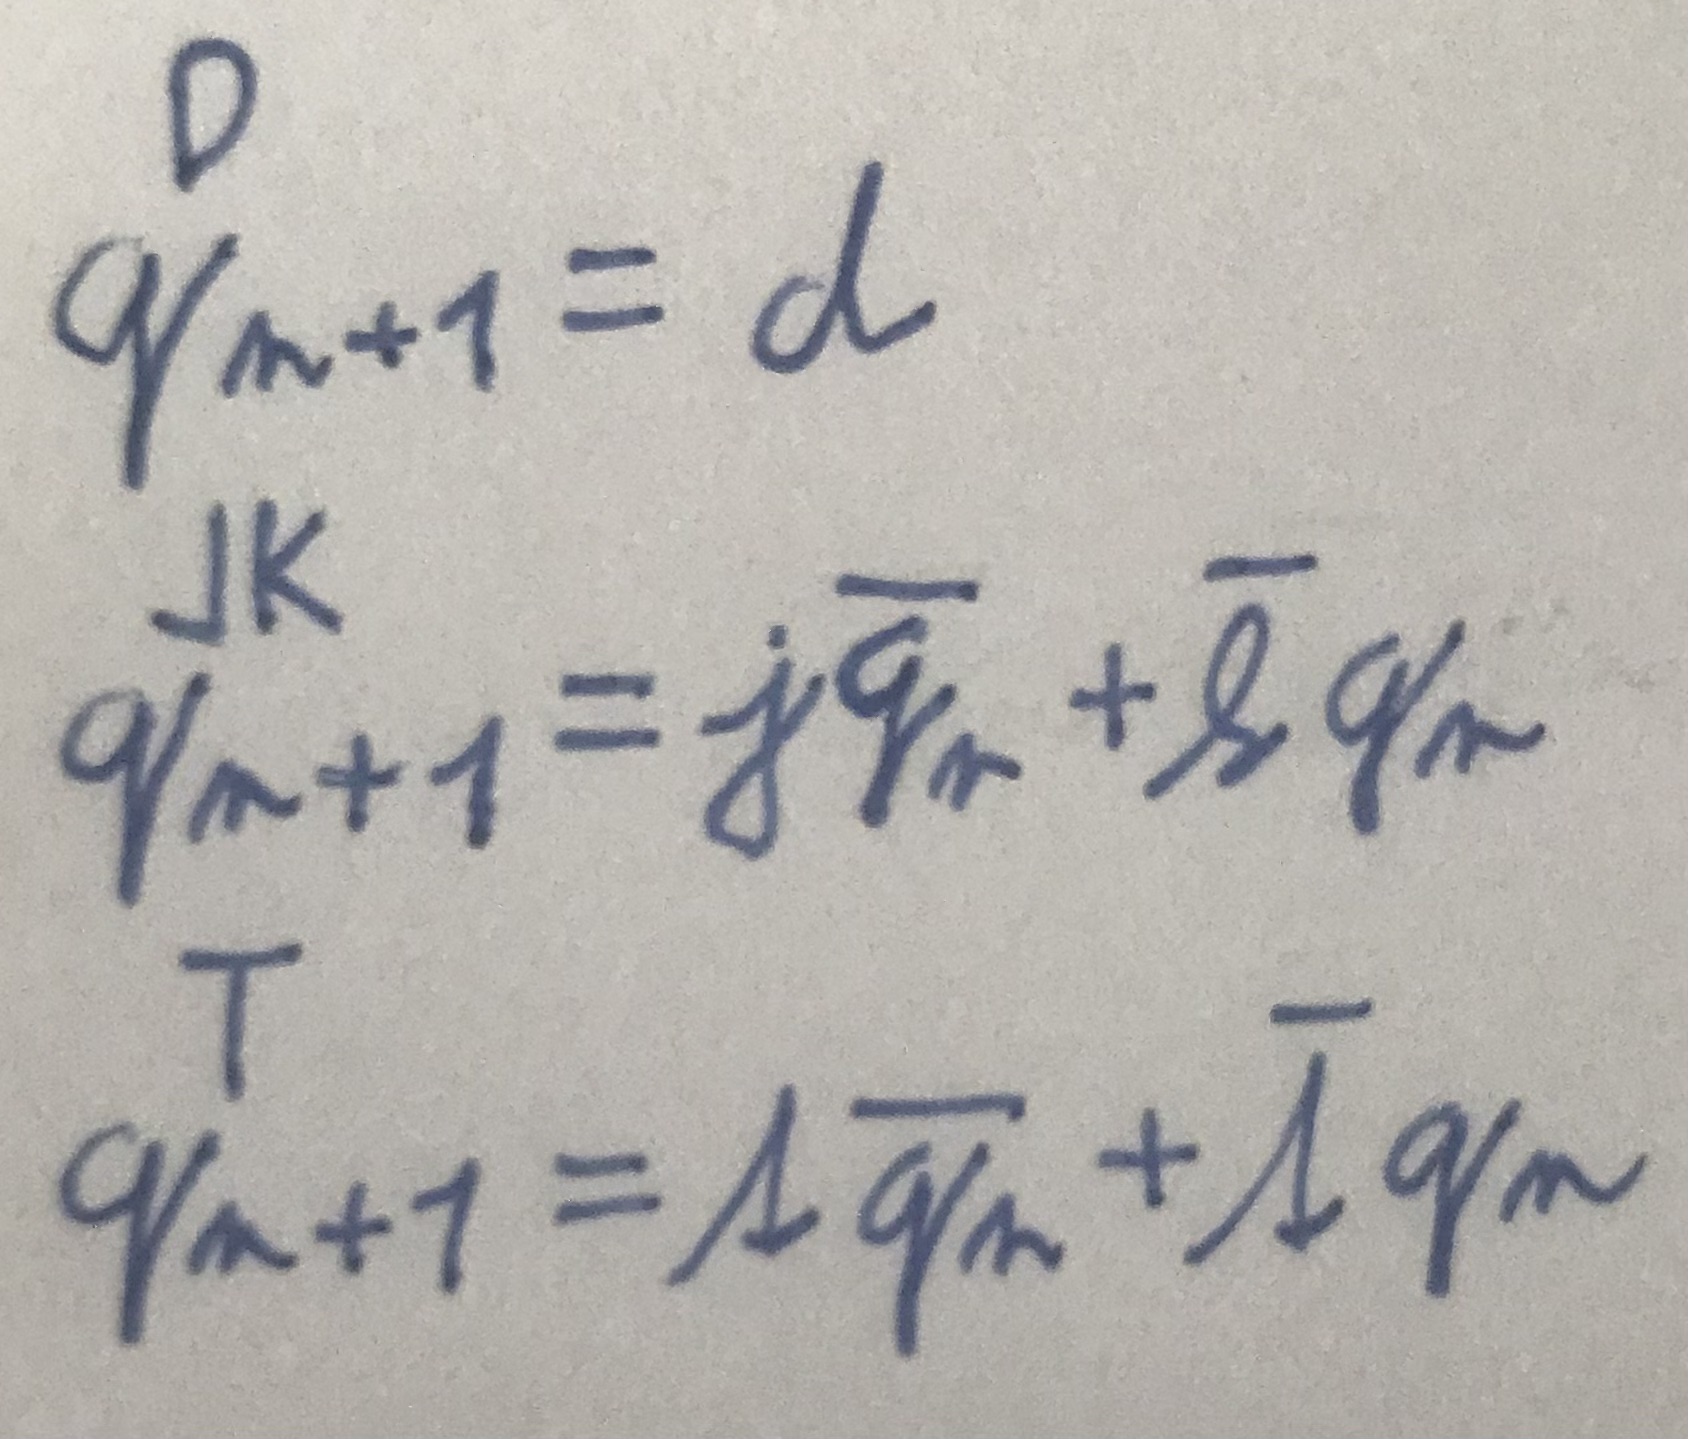 D
qn+1 = d
JK
qn+1 = jq̅n + k̅qn
T
qn+1 = tq̅n + t̅qn